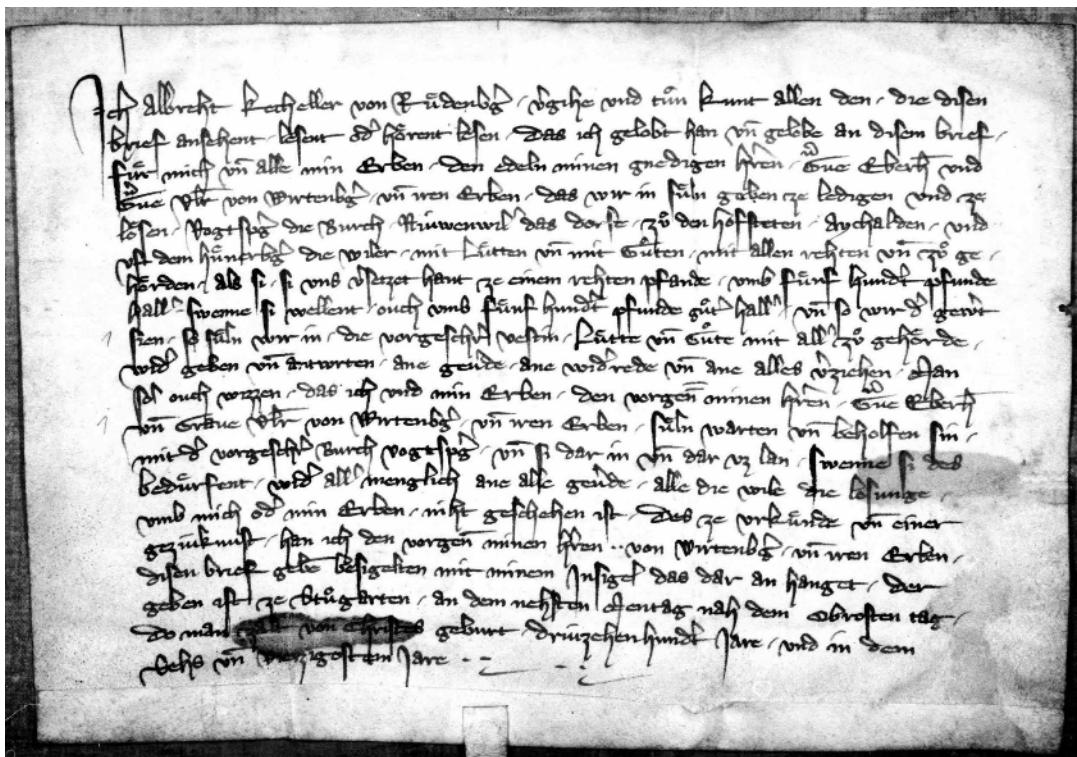 Ich Albreht Kecheller von Růdenbg̾ · v̾gihe vnd tůn kunt allen den · die disen
brief ansehent · lesent od̾ hoͤrent lesen · das ich gelobt han vn̄ gelobe an disem brief ·
fuͤr mich vn̄ alle min Erben · den edeln minen gnedigen h̾ren · Gͮue Eberh̄ vnd
Gͮue Vlr̄ von Wirtenbg̾ · vn̄ iren Erben · das wir in suͤln geben ze ledigen vnd ze
loͤsen · Vogtspg̾ die Burch · Niuwenwil̾ das dorfe · zů den hofsteten · Aychalden · vnd
vf dem huͤnerbg̾ die wiler · mit Luͤtten vn̄ mit Guͤten · mit allen rehten vn̄ zů ge ·
hoͤrden · als si · si vns v̾setzet hant ze einem rehten pfande · vmb fuͤnf hundt̾ pfunde
hall̾ · swenne si wellent · ouch vmb fuͤnf hundt̾ pfunde gůt̾ hall̾ · vn̄ so wir d̾ gew̾t
sien · so suͤln wir in · die vorgeschr̾ vestin · Luͤtte vn̄ Guͤte mit all̾ zů gehoͤrde ·
wid̾ geben vn̄ antwrten · ane geu̾de · ane wid̾rede vn̄ ane alles v̾ziehen · Man
sol ouch wizzen · das ich vnd min Erben · den vorgen̄ minen h̾ren · Gͮue Eberh̄
vn̄ Graue Vlr̄ von Wirtenbg̾ · vn̄ iren Erben · suͤln warten vn̄ beholfen sin ·
mit d̾ vorgeschr̾ Burch Vogtspg̾ · vn̄ si dar in vn̄ dar vz lan · swenne si des
beduͤrfent · wid̾ all̾ menglich ane alle geu̾de · alle die wile die losunge ·
vmb mich od̾ min Erben · niht geschehen ist · des ze vrkuͤnde vn̄ einer
geziuknust · han ich den vorgen̄ minen h̾ren ·· von Wirtenbg̾ · vn̄ iren Erben ·
disen brief gebē besigelten mit minem Insigel das dar an hanget · der
geben ist ze Stůgarten · an dem nehsten Mentag nah dem Obrosten tag ·
do man von Christes geburt · driuzehenhundt̾ Jare · vnd in dem
Sehs vn̄ vierzigostem Jare